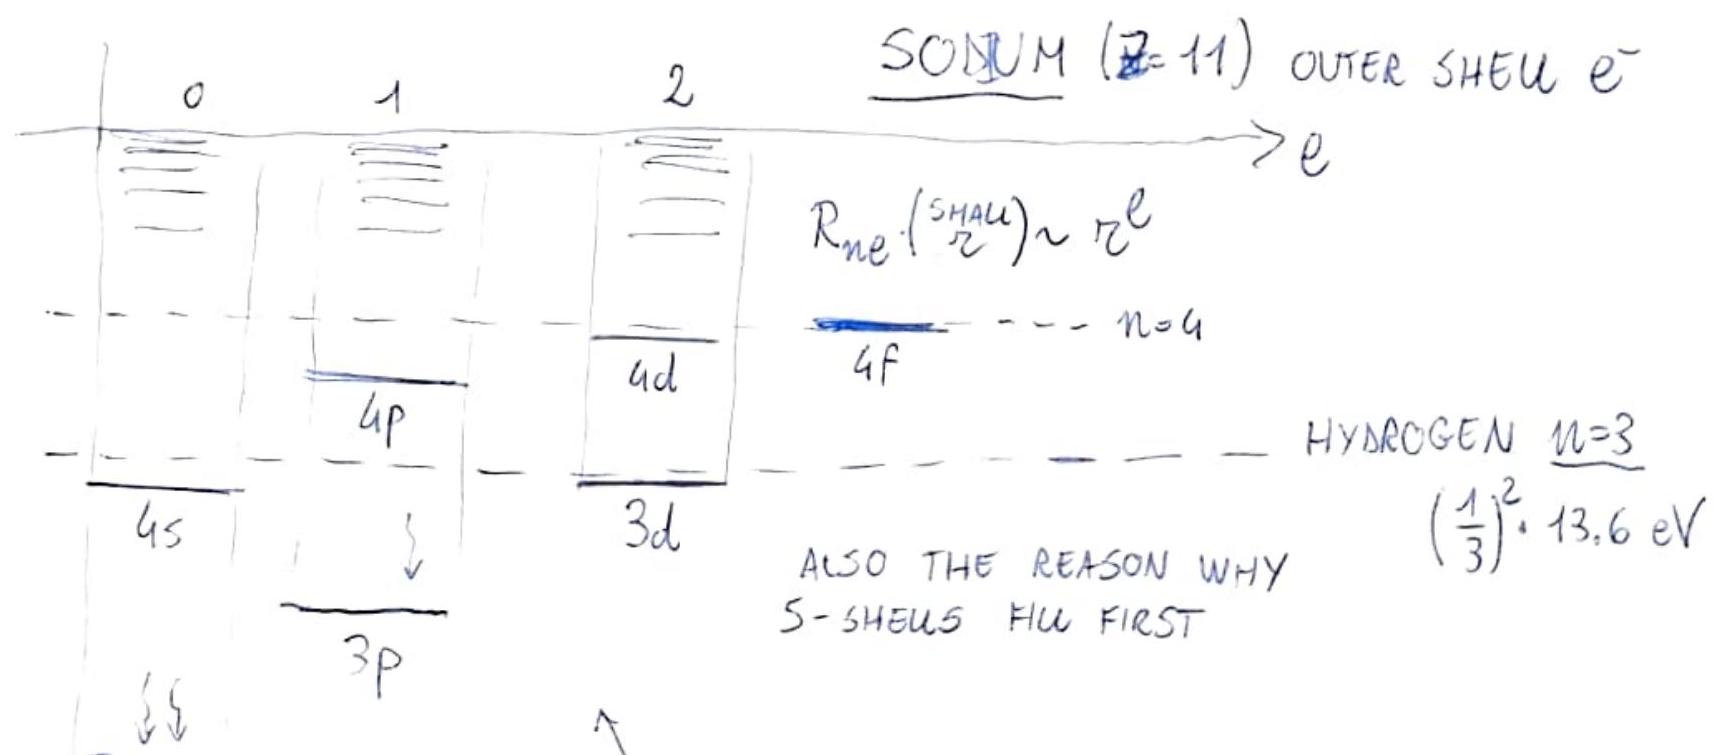 SODIUM (Z=11) OUTER SHELL e⁻
0 1 2
ℓ
R_nℓ (SMALL r) ~ r^ℓ
n=4
4d 4f
4p
HYDROGEN n=3
(1/3)² · 13.6 eV
4s 3d
ALSO THE REASON WHY
S-SHELLS FILL FIRST
3p